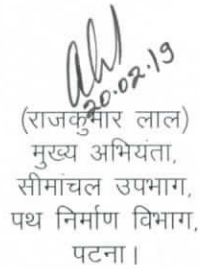 20.02.19
(राजकुमार लाल)
मुख्य अभियंता,
सीमांचल उपभाग,
पथ निर्माण विभाग,
पटना।